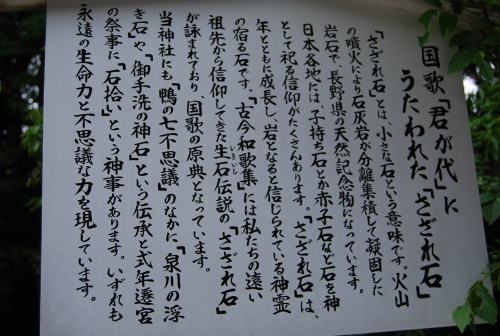 国歌「君が代」に
うたわれた「さざれ石」
「さざれ石」とは、小さな石という意味です。火山
の噴火により石灰岩が分離集積して凝固した
岩石で、長野県の天然記念物になっています。
日本各地には子持ち石とか赤子石など石を神
として祀る信仰がたくさんあります。「さざれ石」は、
年とともに成長し、岩となると信じられている神霊
の宿る石です。「古今和歌集」には私たちの遠い
祖先から信仰してきた生石伝説の「さざれ石」
いきいし
が詠まれており、国歌の原典となっています。
当神社にも、「鴨の七不思議」のなかに、「泉川の浮
き石」や、「御手洗の神石」という伝承と式年遷宮
の祭事に「石拾」という神事があります。いずれも
永遠の生命力と不思議な力を現しています。